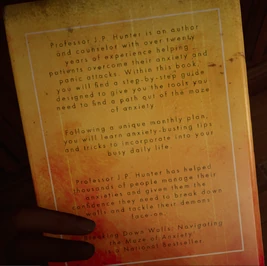 Professor J.P. Hunter is an author
and counselor with over twenty
years of experience helping
patients overcome their anxiety and
panic attacks. Within this book,
you will find a step-by-step guide
designed to give you the tools you
need to find a path out of the maze
of anxiety.
Following a unique monthly plan,
you will learn anxiety-busting tips
and tricks to incorporate into your
busy daily life.
Professor J.P. Hunter has helped
thousands of people manage their
anxieties and given them the
confidence they need to break down
walls and tackle their demons
face-on.
Down Walls: Navigating
the Maze of Anxiety
National Bestseller